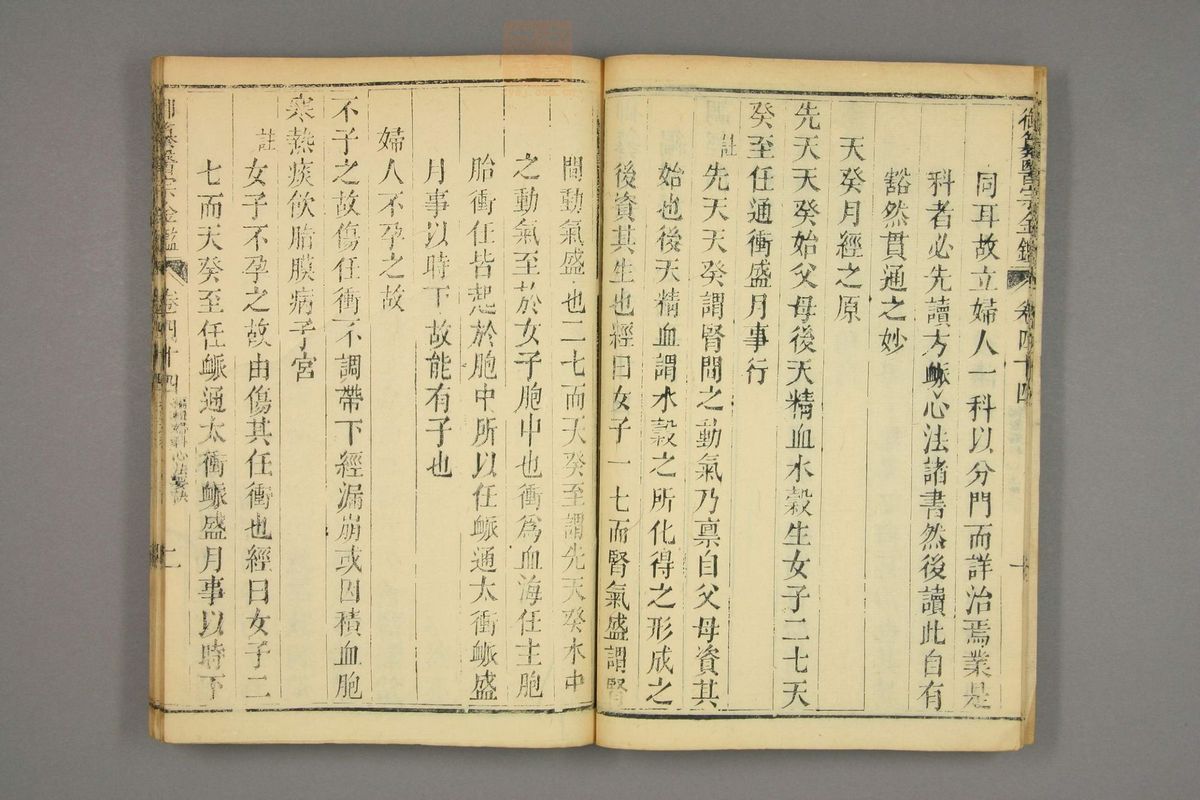 御纂醫宗金鑑 卷四十四
同耳故立婦人一科以分門而詳治焉業是
科者必先讀方脈心法諸書然後讀此自有
豁然貫通之妙
天癸月經之原
先天天癸始父母後天精血水穀生女子二七天
癸至任通衝盛月事行
註先天天癸謂腎間之動氣乃禀自父母資其
始也後天精血謂水穀之所化得之形成之
後資其生也經曰女子一七而腎氣盛謂腎
間動氣盛也二七而天癸至謂先天癸水中
之動氣至於女子胞中也衝為血海任主胞
胎衝任皆起於胞中所以任脈通太衝脈盛
月事以時下故能有子也
婦人不孕之故
不子之故傷任衝不調帶下經漏崩或因積血胞
寒熱痰飲脂膜病子宮
註女子不孕之故由傷其任衝也經曰女子二
七而天癸至任脈通太衝脈盛月事以時下
御纂醫宗金鑑 卷四十四 編輯婦科心法要訣 二